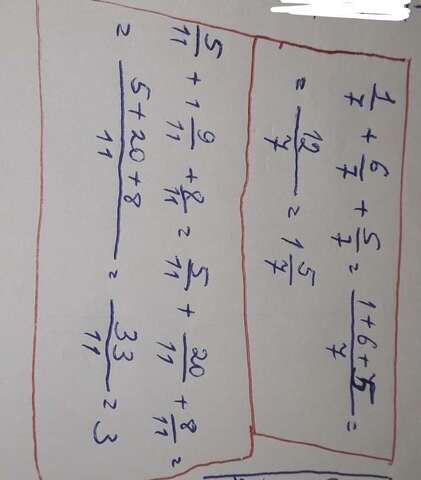 1/7 + 6/7 + 5/7 = (1+6+5)/7 =
= 12/7 = 1 5/7
5/11 + 1 9/11 + 8/11 = 5/11 + 20/11 + 8/11 =
= (5+20+8)/11 = 33/11 = 3